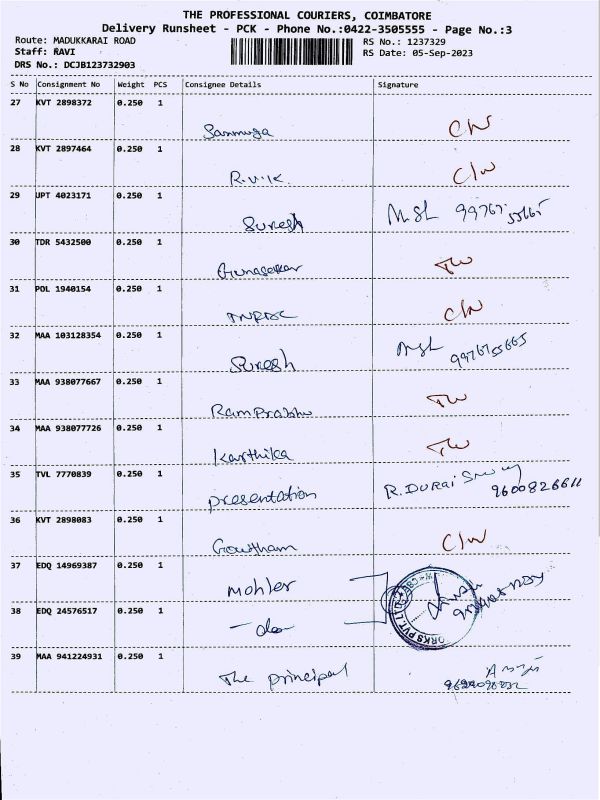 THE PROFESSIONAL COURIERS, COIMBATORE
Delivery Runsheet - PCK - Phone No.:0422-3505555 - Page No.:3
Route: MADUKKARAI ROAD RS No.: 1237329
Staff: RAVI RS Date: 05-Sep-2023
DRS No.: DCJB123732903
S No Consignment No Weight PCS Consignee Details Signature
27 KVT 2898372 0.250 1
Sanmuga C/W
28 KVT 2897464 0.250 1
R.V.K. C/W
29 UPT 4023171 0.250 1
Suresh MSL 9976755665
30 TDR 5432500 0.250 1
Gunasekar TW
31 POL 1940154 0.250 1
TNPDC C/W
32 MAA 103128354 0.250 1
Suresh MSL 9976755665
33 MAA 938077667 0.250 1
Ram Prabhu TW
34 MAA 938077726 0.250 1
Karthika TW
35 TVL 7770839 0.250 1
presentation R. DURAI 9600826611
36 KVT 2898083 0.250 1
Gowtham C/W
37 EDQ 14969387 0.250 1
mohler
38 EDQ 24576517 0.250 1
- do - ORKS PVT. LTD.
39 MAA 941224931 0.250 1
The principal